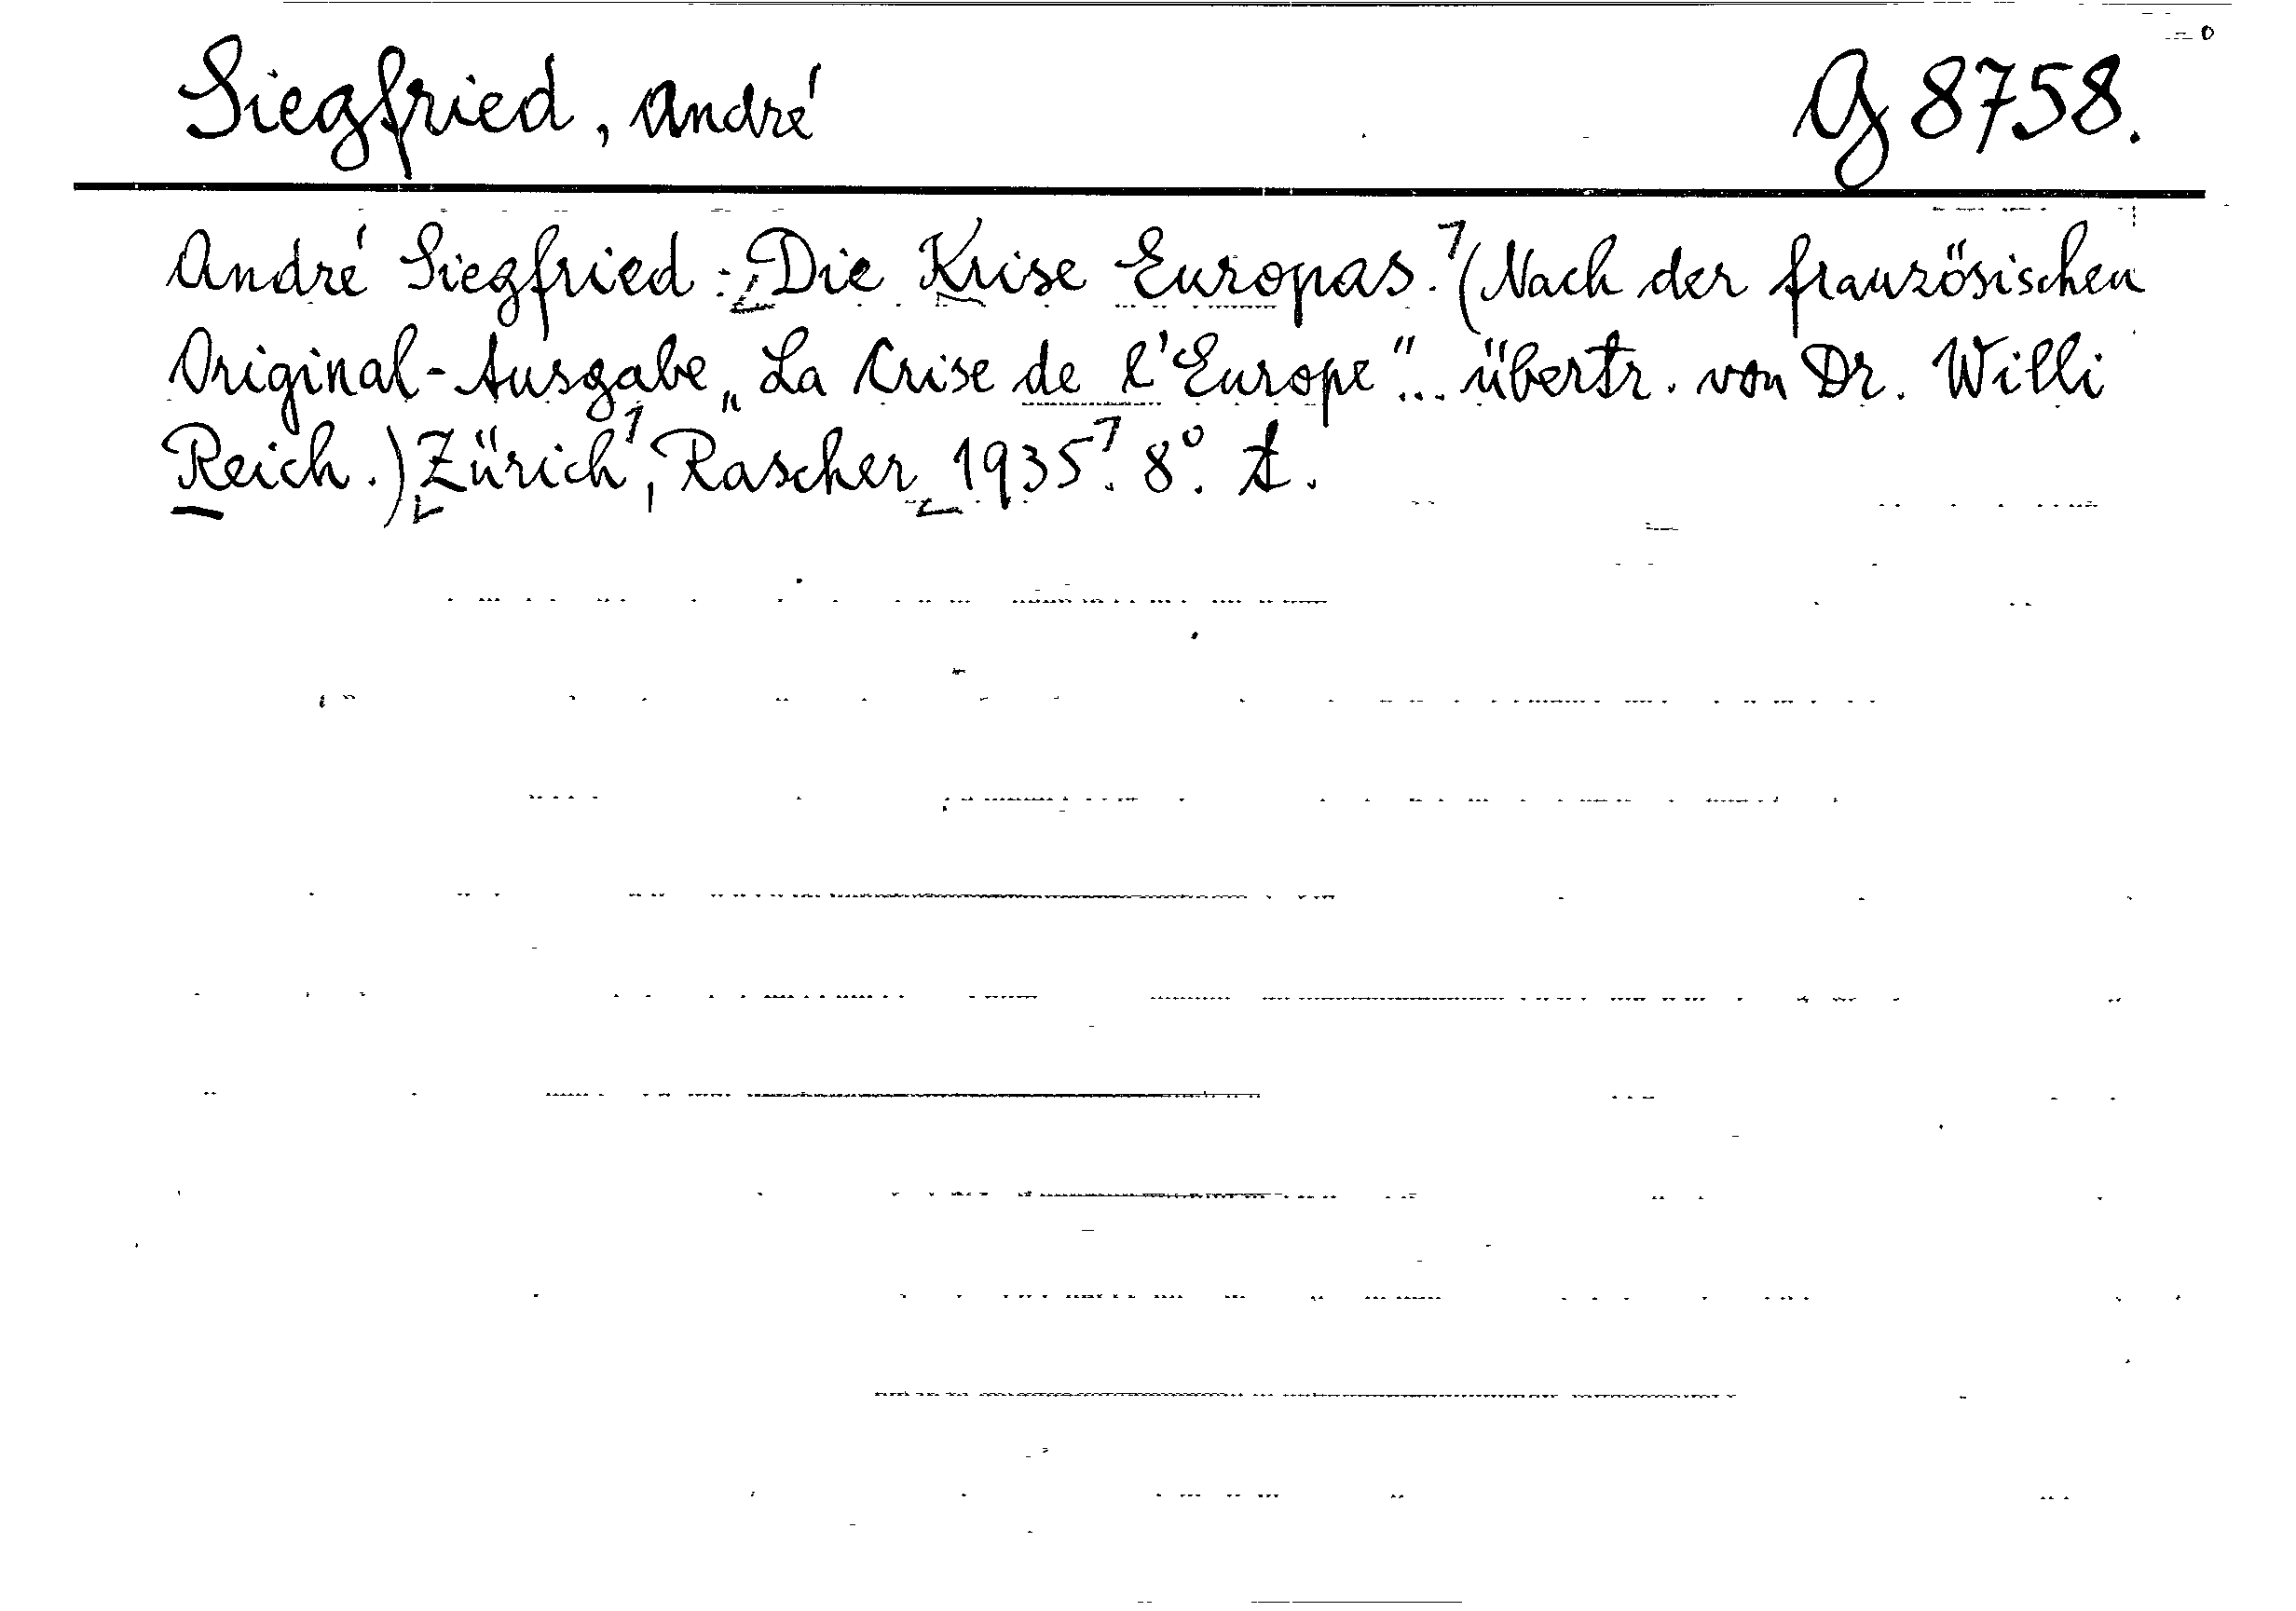 Siegfried, André G 8758.
André Siegfried: Die Krise Europas. (Nach der französischen
Original-Ausgabe „La Crise de l'Europe“... übertr. von Dr. Willi
Reich.) Zürich, Rascher 1935. 8°.